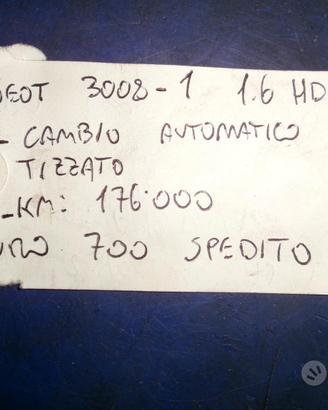 EOT 3008-1 1.6 HD
- CAMBIO AUTOMATICO
TIZZATO
-KM: 176.000
URO 700 SPEDITO